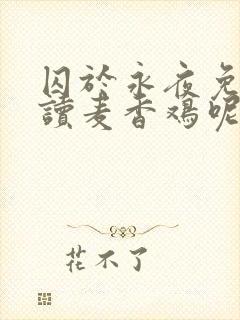 囚於永夜免
讀麦香鸡呢
花不了